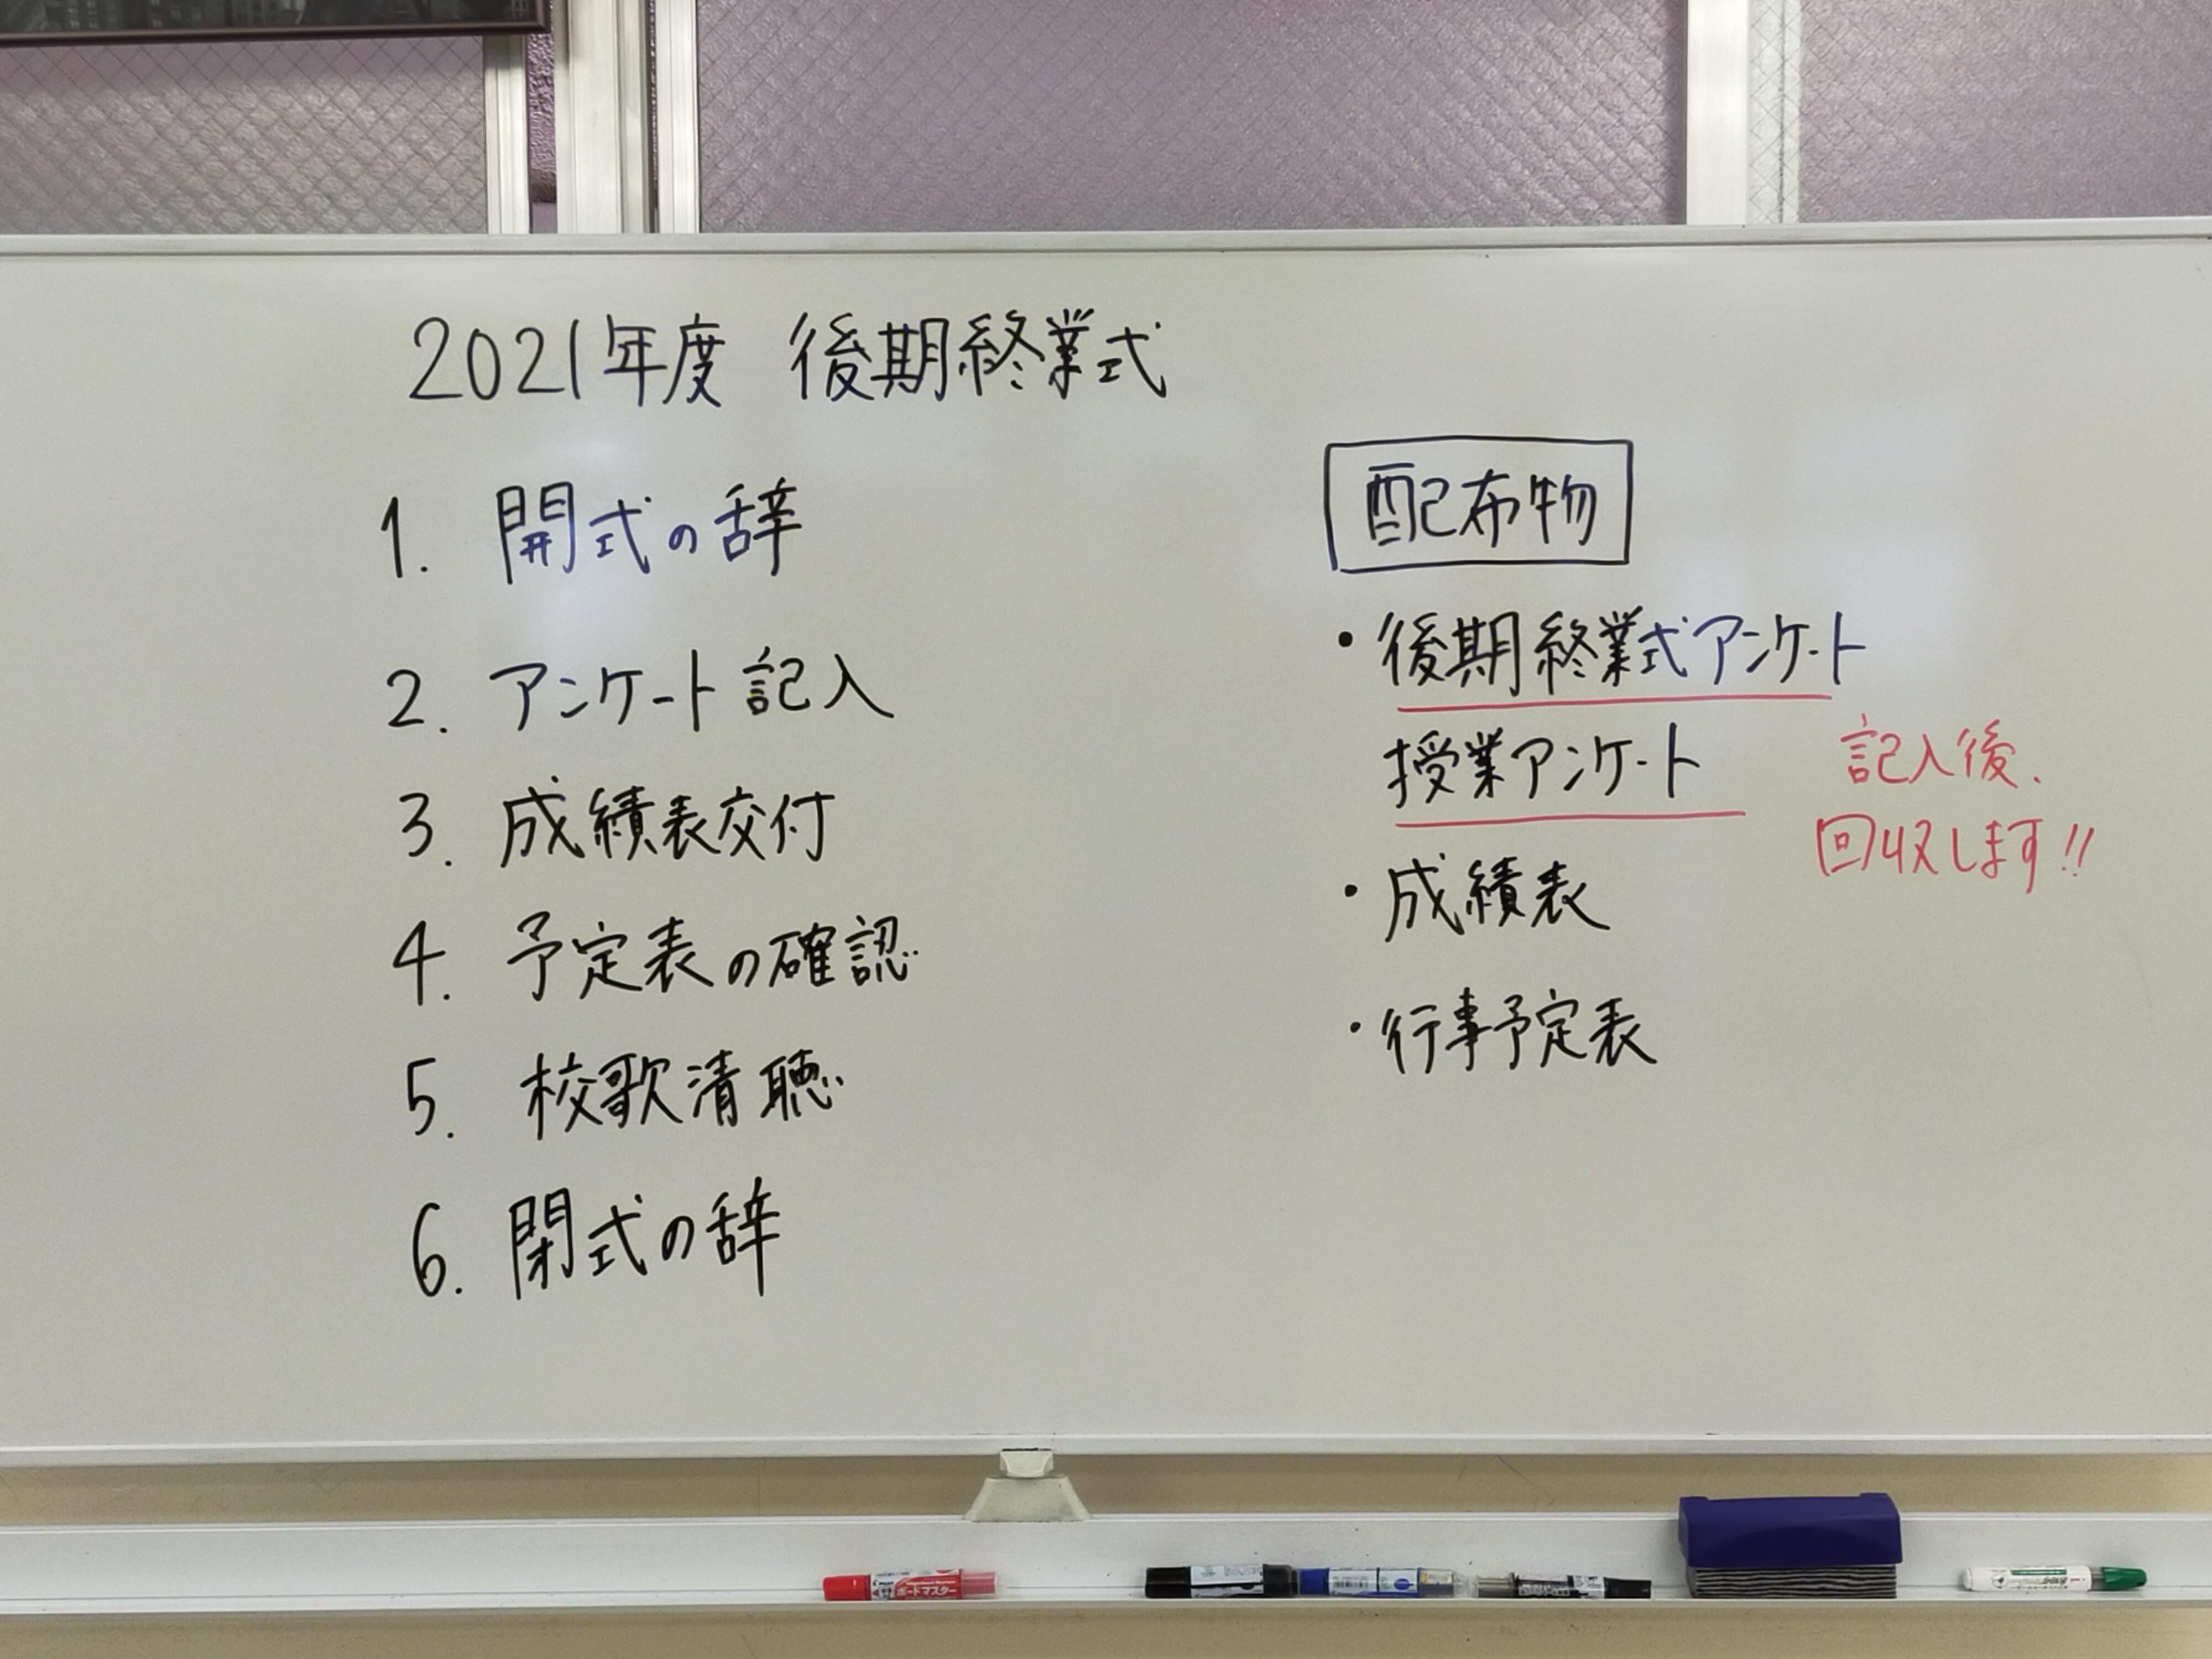 2021年度 後期終業式
1. 開式の辞
2. アンケート記入
3. 成績表交付
4. 予定表の確認
5. 校歌清聴
6. 閉式の辞
配布物
・後期終業式アンケート
授業アンケート
記入後、
回収します!!
・成績表
・行事予定表
ボードマスター